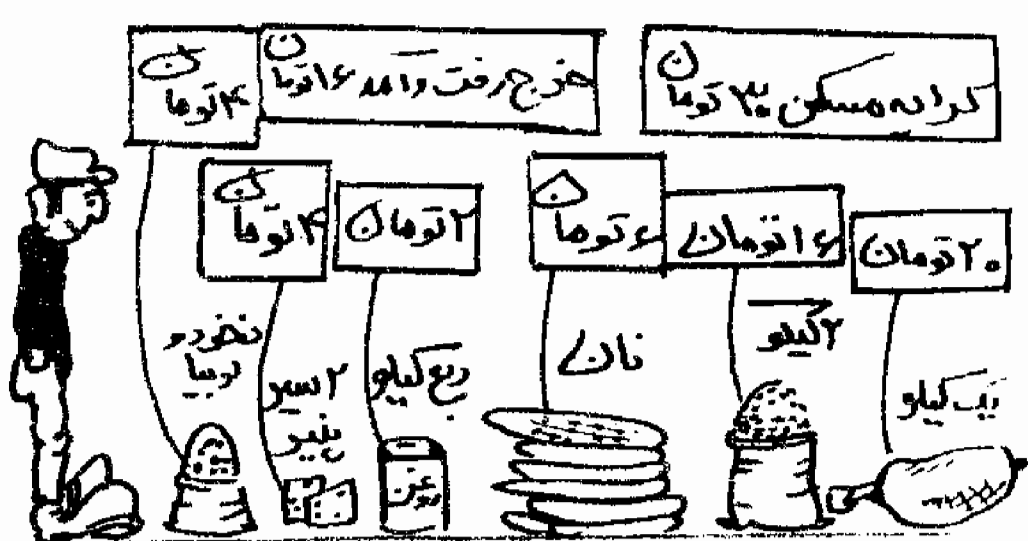 کرایه مسکن ۳۰ تومان
خرج رفت وآمد ۱۶ تومان
۴ تومان
۲۰ تومان
۱۶ تومان
۶ تومان
۲ تومان
۴ تومان
یک کیلو
۲ کیلو
نان
ربع کیلو
روغن
۲ سیر
پنیر
نخود و
لوبیا